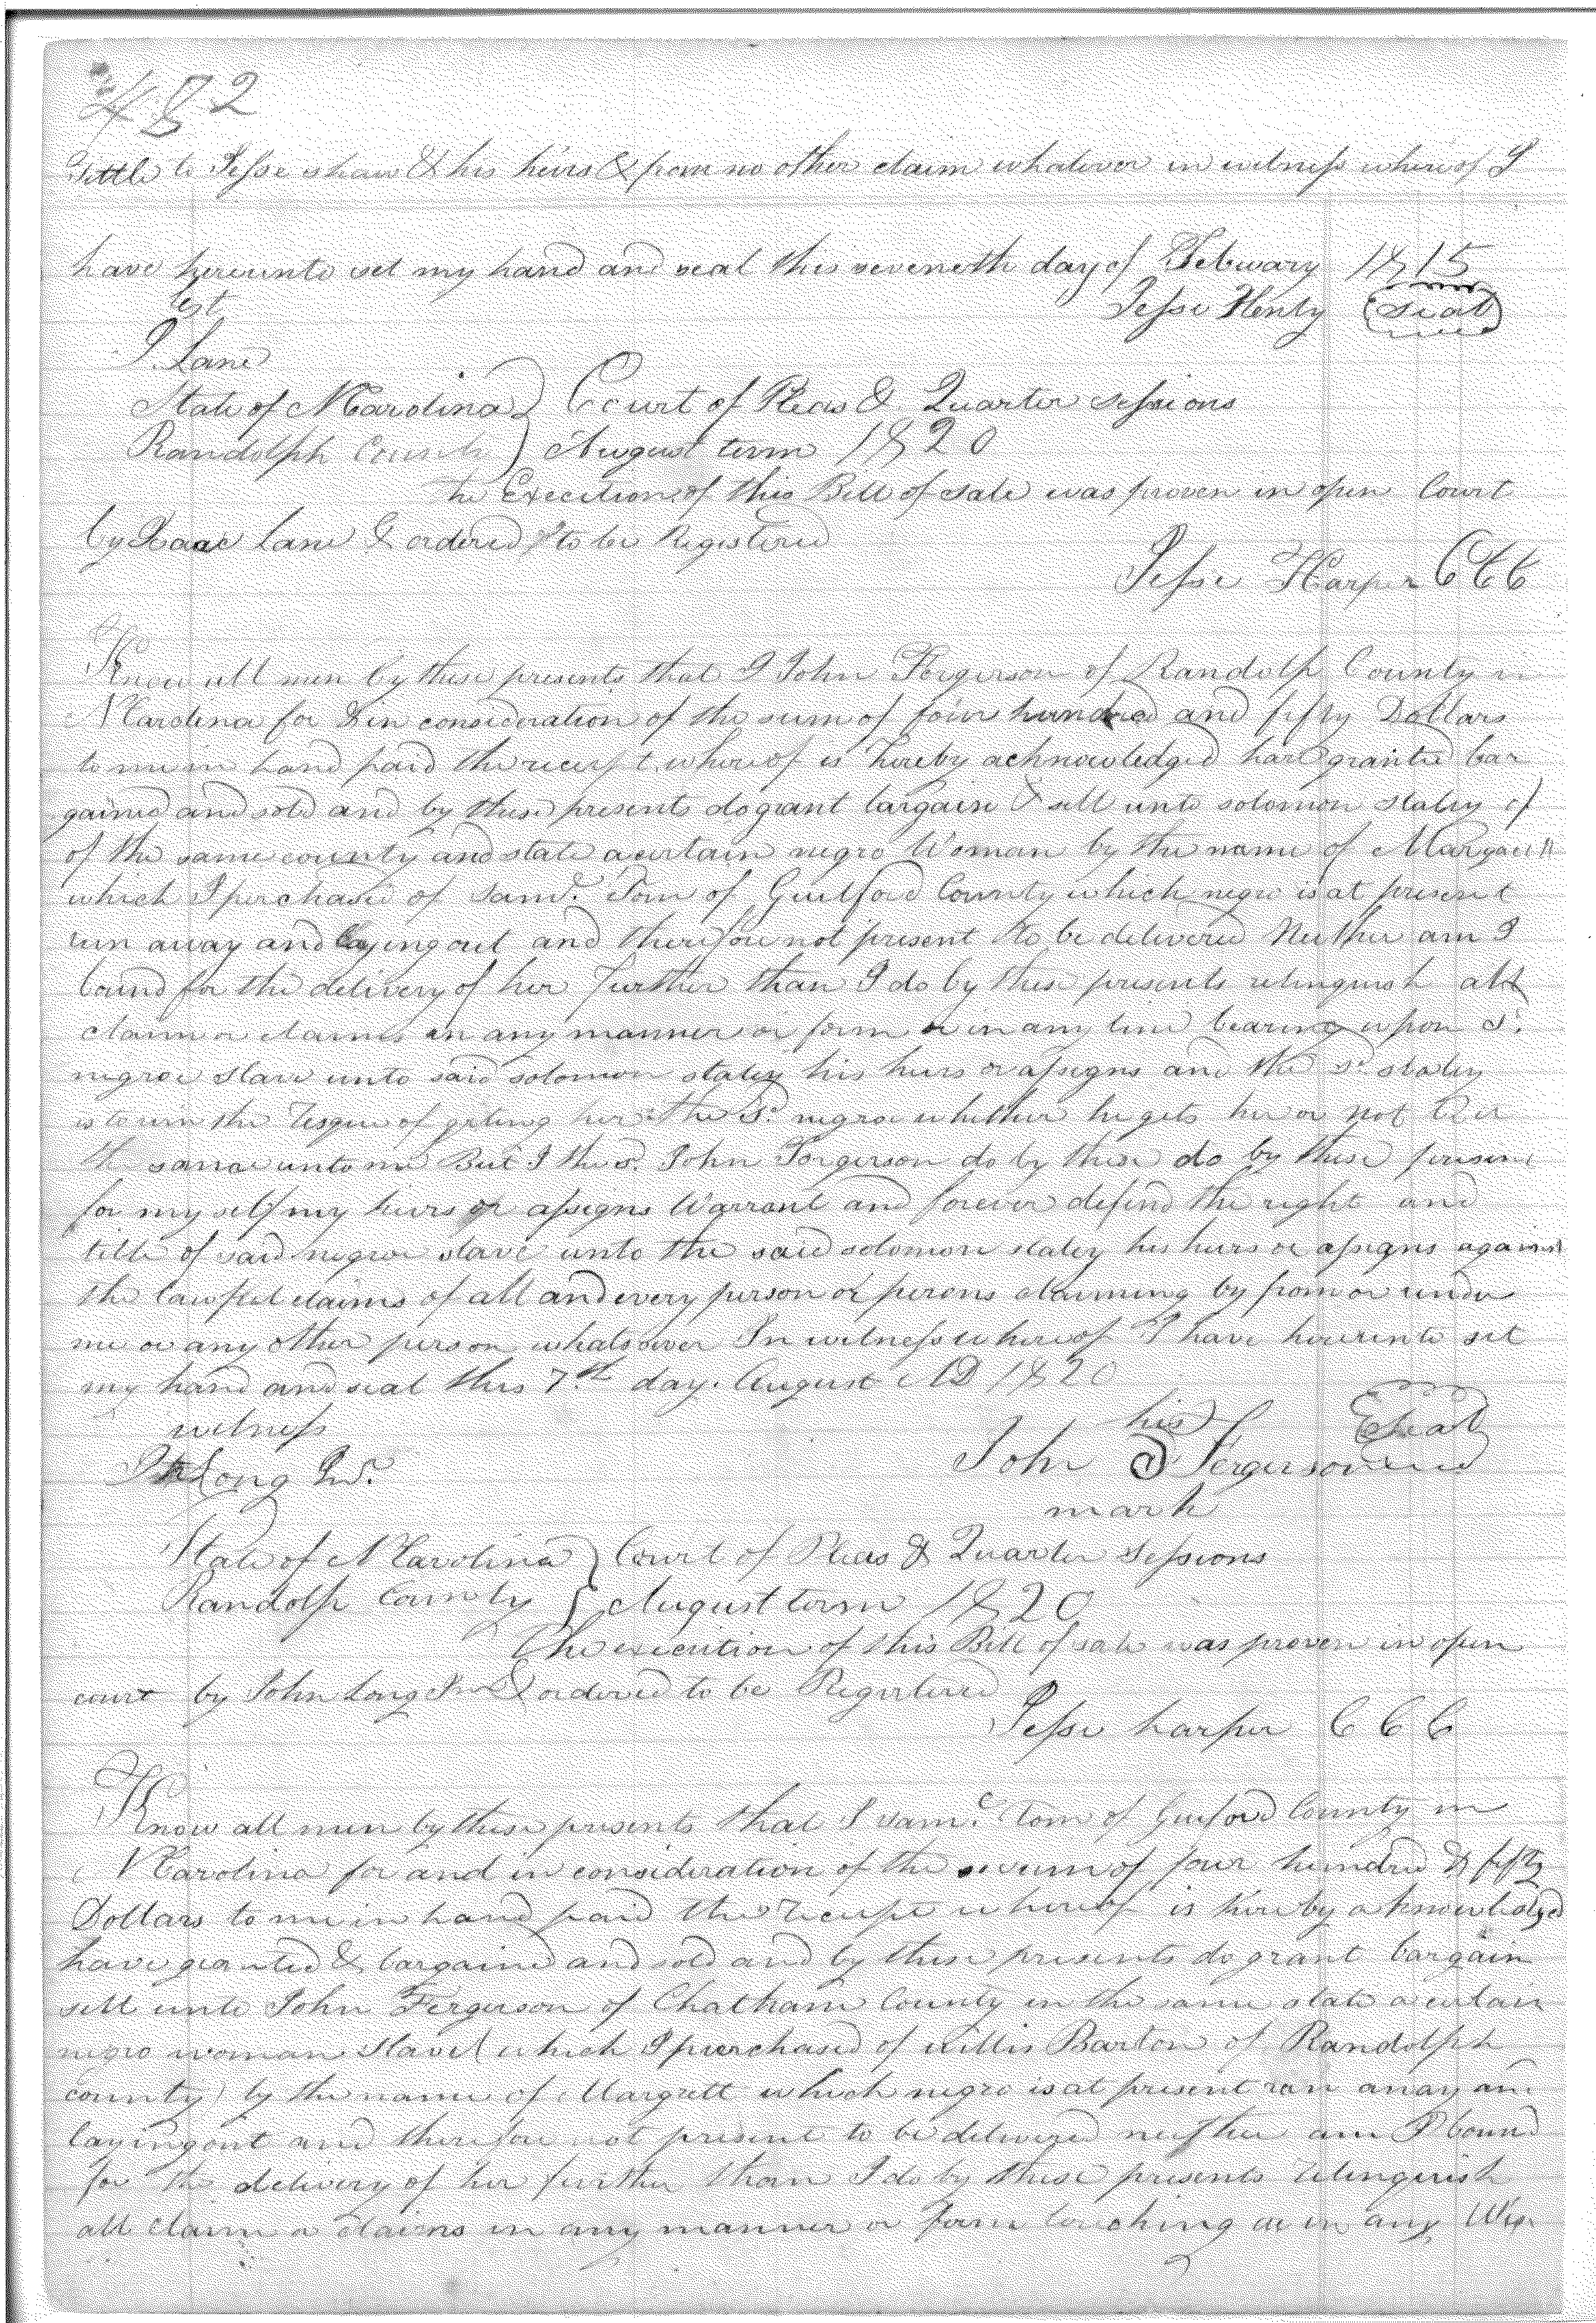 482
Tittle to Jesse shaw & his heirs & from no other claim whatever in witness whereof I
have hereunto set my hand and seal this seveneth day of Febuary 1815
Test Jesse Henly (seal)
J. Lane
State of N Carolina } Court of Pleas & Quarter sessions
Randolph County } August term 1820
The Execution of this Bill of sale was proven in open Court
by Isaac Lane & ordered to be Registered
Jesse Harper CCC
Know all men by these presents that I John Fergerson of Randolph County in
N Carolina for & in consideration of the sum of four hundred and fifty Dollars
to me in hand paid the receipt whereof is hereby acknowledged have granted bar
gained and sold and by these presents do grant bargain & sell unto solomon staley of
of the same county and state a certain negro Woman by the name of
which I purchased of Saml. Tom of Guilford County which negro is at present
run away and laying out and therefore not present to be delivered Neither am I
bound for the delivery of her further than I do by these presents relinquish all
claim or claims in any manner or form or in any wise bearing upon sd.
negroe slave unto said solomon staley his heirs or assigns and the sd staley
is to run the resque of geting her the sd. negroe whether he gets her or not
the same unto me But I the sd. John Forgerson do by these do by these presents
for my self my heirs or assigns Warrant and forever defend the right and
title of said negroe slave unto the said solomon staley his heirs or assigns against
the lawful claims of all and every person or persons claiming by from or under
me or any other person whatsoever In witness whereof I have hereunto set
my hand and seal this 7th day. August AD 1820
witness his (seal)
Long Jnr. John Fergerson
mark
State of N Carolina } Court of Pleas & Quarter Sessions
Randolph County } August term 1820
The execution of this Bill of sale was proven in open
court by John Long Jnr & ordered to be Registered
Jesse harper CCC
Know all men by these presents that I saml. Tom of Guilford County in
N Carolina for and in consideration of the sum of four hundred & fifty
Dollars to me in hand paid the receipt whereof is hereby acknowledged
have granted & bargained and sold and by these presents do grant bargain
sell unto John Fergerson of Chatham County in the same state a certain
negro woman slave (which I purchased of willis Barton of Randolph
county) by the name of Margrett which negro is at present ran away and
laying out and therefore not present to be delivered neither am I bound
for the delivery of her further than I do by these presents relinquish
all claim or claims in any manner or form touching or in any Wise